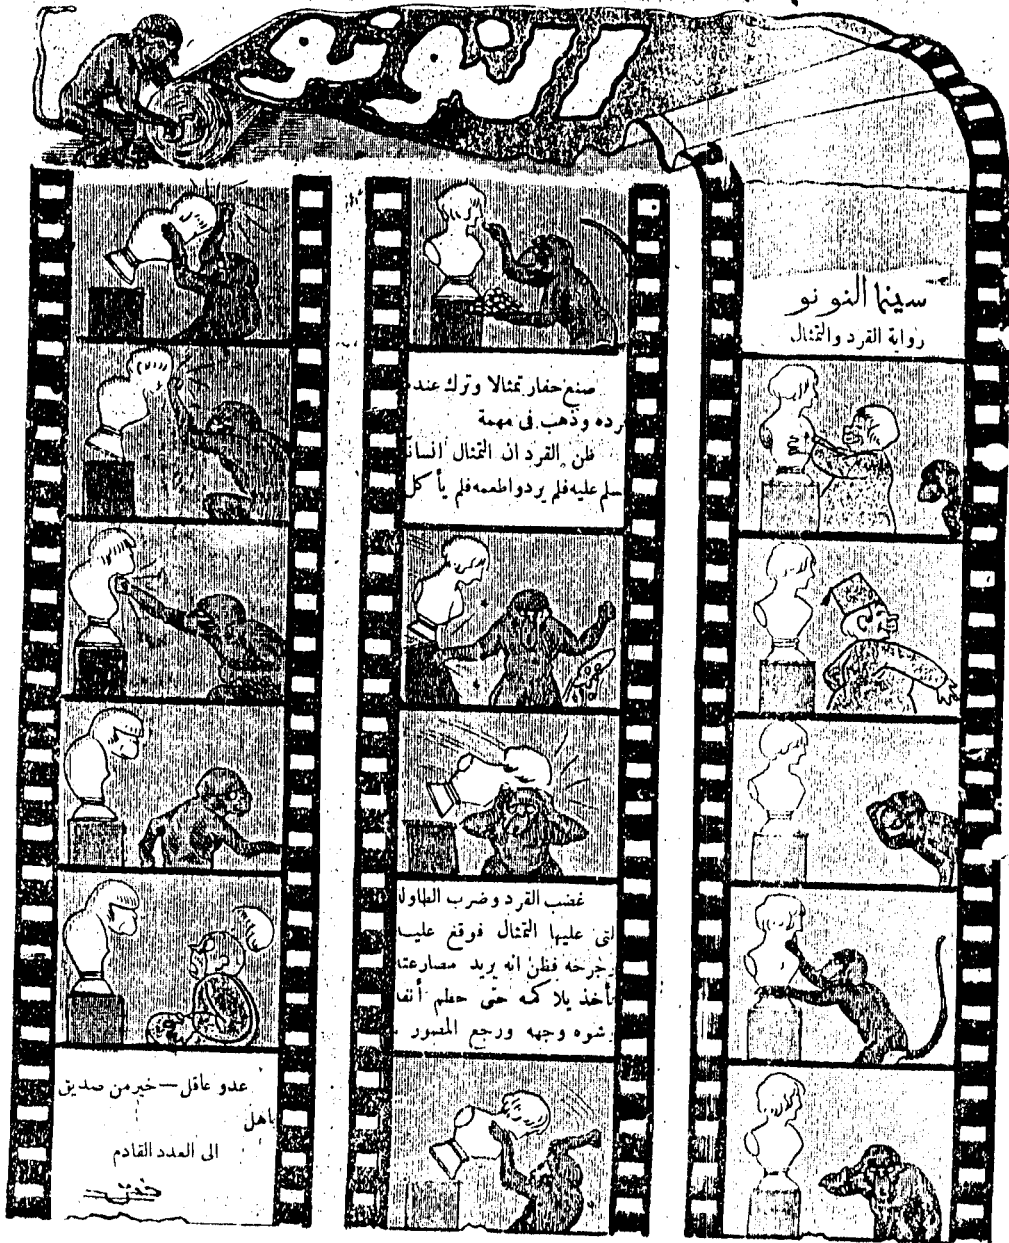 النونو
سينما النونو
رواية القرد والتمثال
صنع حفار تمثالا وترك عنده
قرده وذهب فى مهمة
ظن القرد ان التمثال انسان
سلم عليه فلم يرد واطعمه فلم يأكل
غضب القرد وضرب الطاولة
التى عليها التمثال فوقع عليه
وجرحه فظن انه يريد مصارعته
فأخذ يلاكمه حتى حطم أنفه
وشوه وجهه ورجع المصور
عدو عاقل — خير من صديق
جاهل
الى العدد القادم